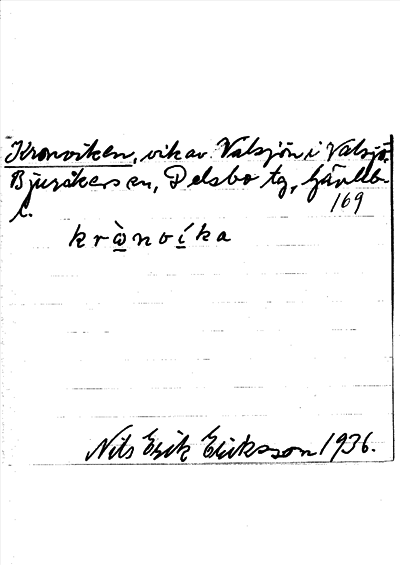 Kronviken, vik av Valsjön i Valsjö,
Bjuråkers sn, Delsbo tg, Gävleb.
l.
169
krònvíka
Nils Erik Eriksson 1936.